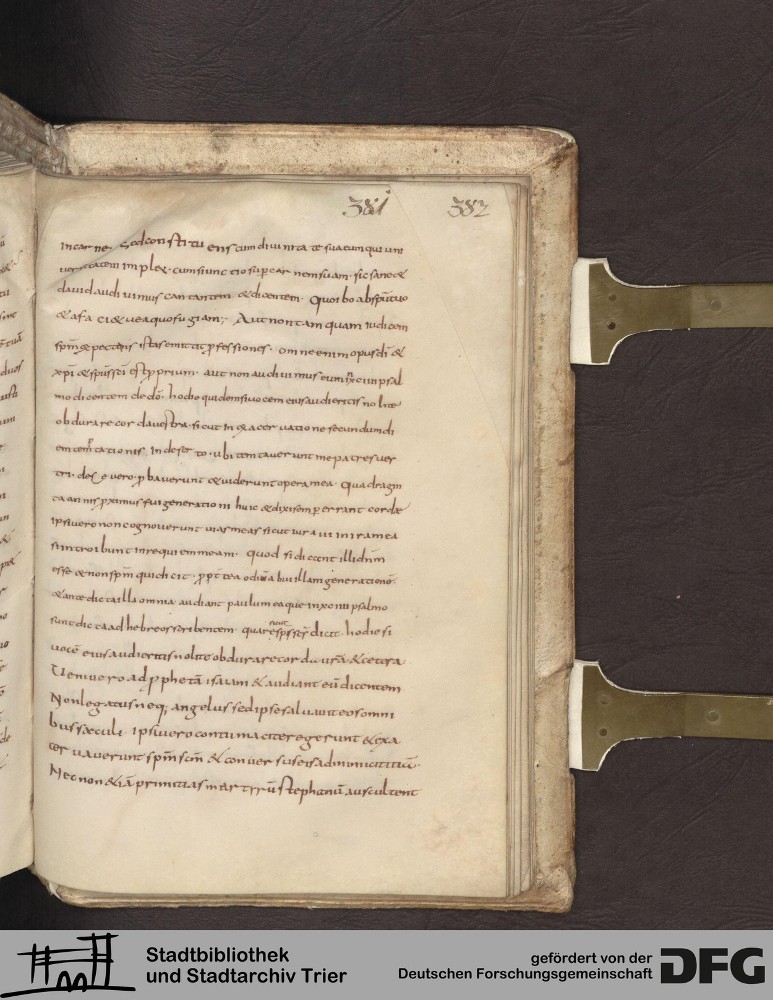 381 382
in carne. Sed constituens cum divinitate sua cum qui uni
veritatem implet. cum sit unctio super carnem suam. sic sane &
david audivimus cantantem. & dicentem. Quo ibo ab spiritu tuo
& a facie tua quo fugiam;. Aut non tamquam iudicem
omne enim opus di &
xpi & sps sci est proprium. aut non audivimus eum in psal
mo dicentem de do. hodie quidem si vocem eius audieritis nolite
obdurare cor da vestra. sicut in exacervatione secundum di
em temptationis in deserto. ubi temtaverunt me patres ves
tri. probaverunt & viderunt opera mea. Quadragin
ta annis proximus fui generationi huic & dixi semper errant corde
ipsi vero non cognoverunt vias meas sicut iuravi in ira mea
si introibunt in requiem meam. quod si dicent illi dnm
esse & non spm qui dicit. propt ea odivi illam generationem.
& ante dicta illa omnia. audiant paulum ea que in psalmo
sunt dicta ad hebreos scribentem. quare sicut sps scs dicit. hodie si
vocem eius audieritis nolite obdurare corda vra & cetera
Veni vero ad pphetam isaiam & audiant eum dicentem
Non legatus neq; angelus sed ipse salvavit eos omni
bus sæculi. ipsi vero contumaciter egerunt & exa
cervaverunt spm scm & conversus est eis ad inimicitiam.
Nec non & iam primitias martyrum stephanum auscultent
Stadtbibliothek
und Stadtarchiv Trier
gefördert von der
Deutschen Forschungsgemeinschaft
DFG